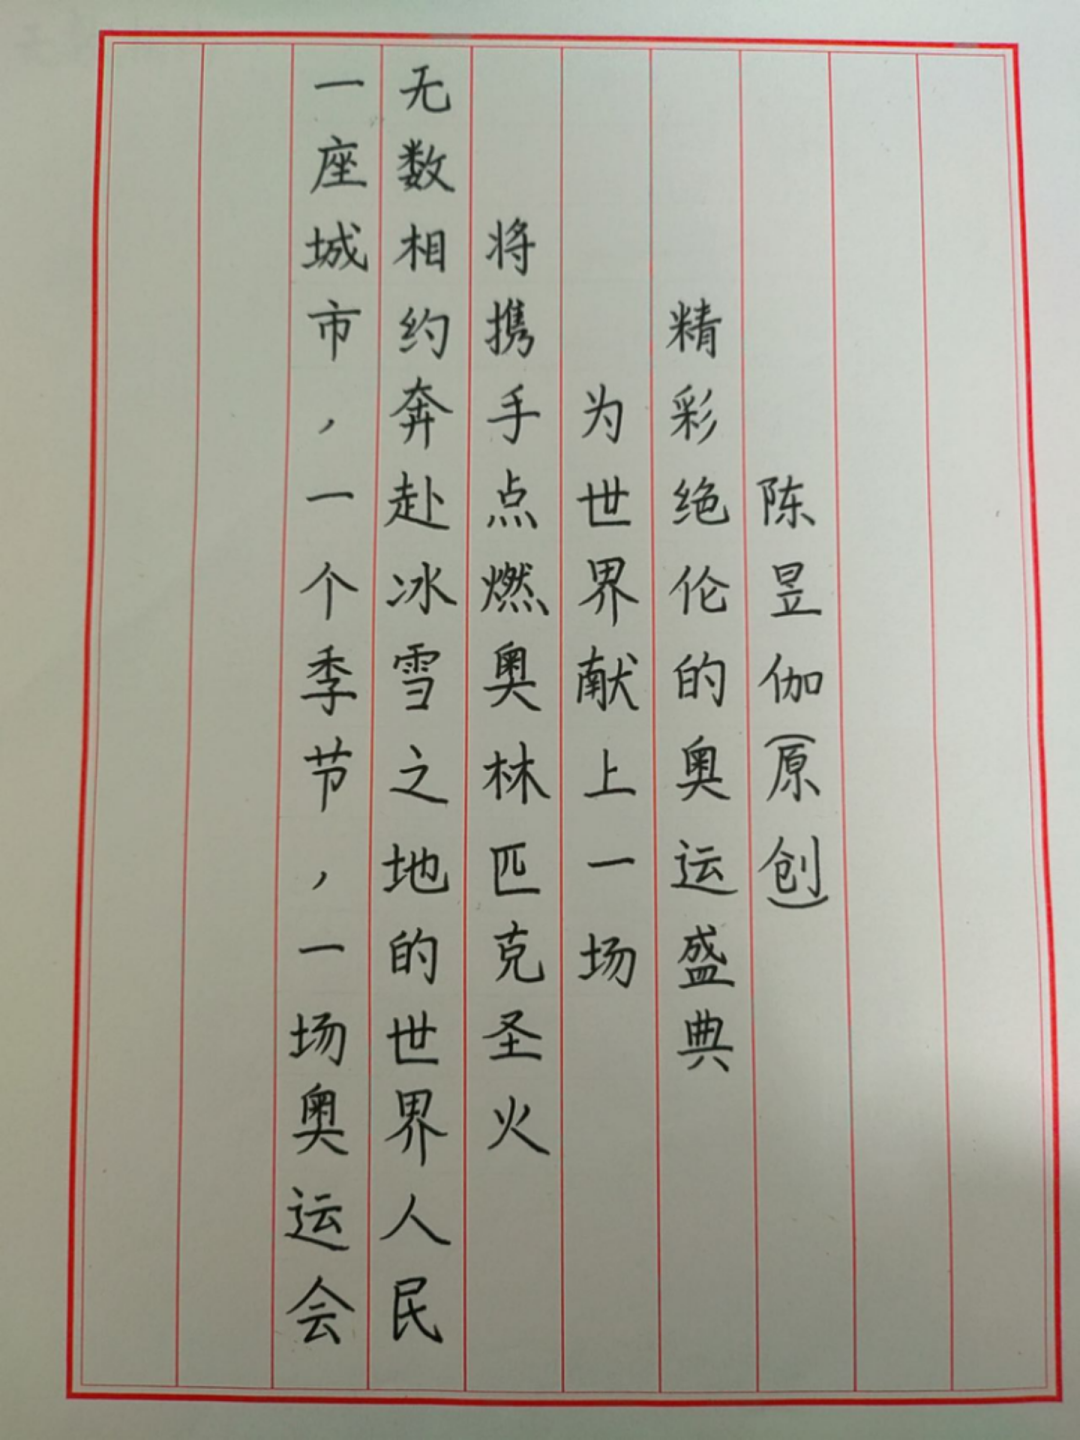 一座城市，一个季节，一场奥运会
无数相约奔赴冰雪之地的世界人民
将携手点燃奥林匹克圣火
为世界献上一场
精彩绝伦的奥运盛典
陈昱伽(原创)